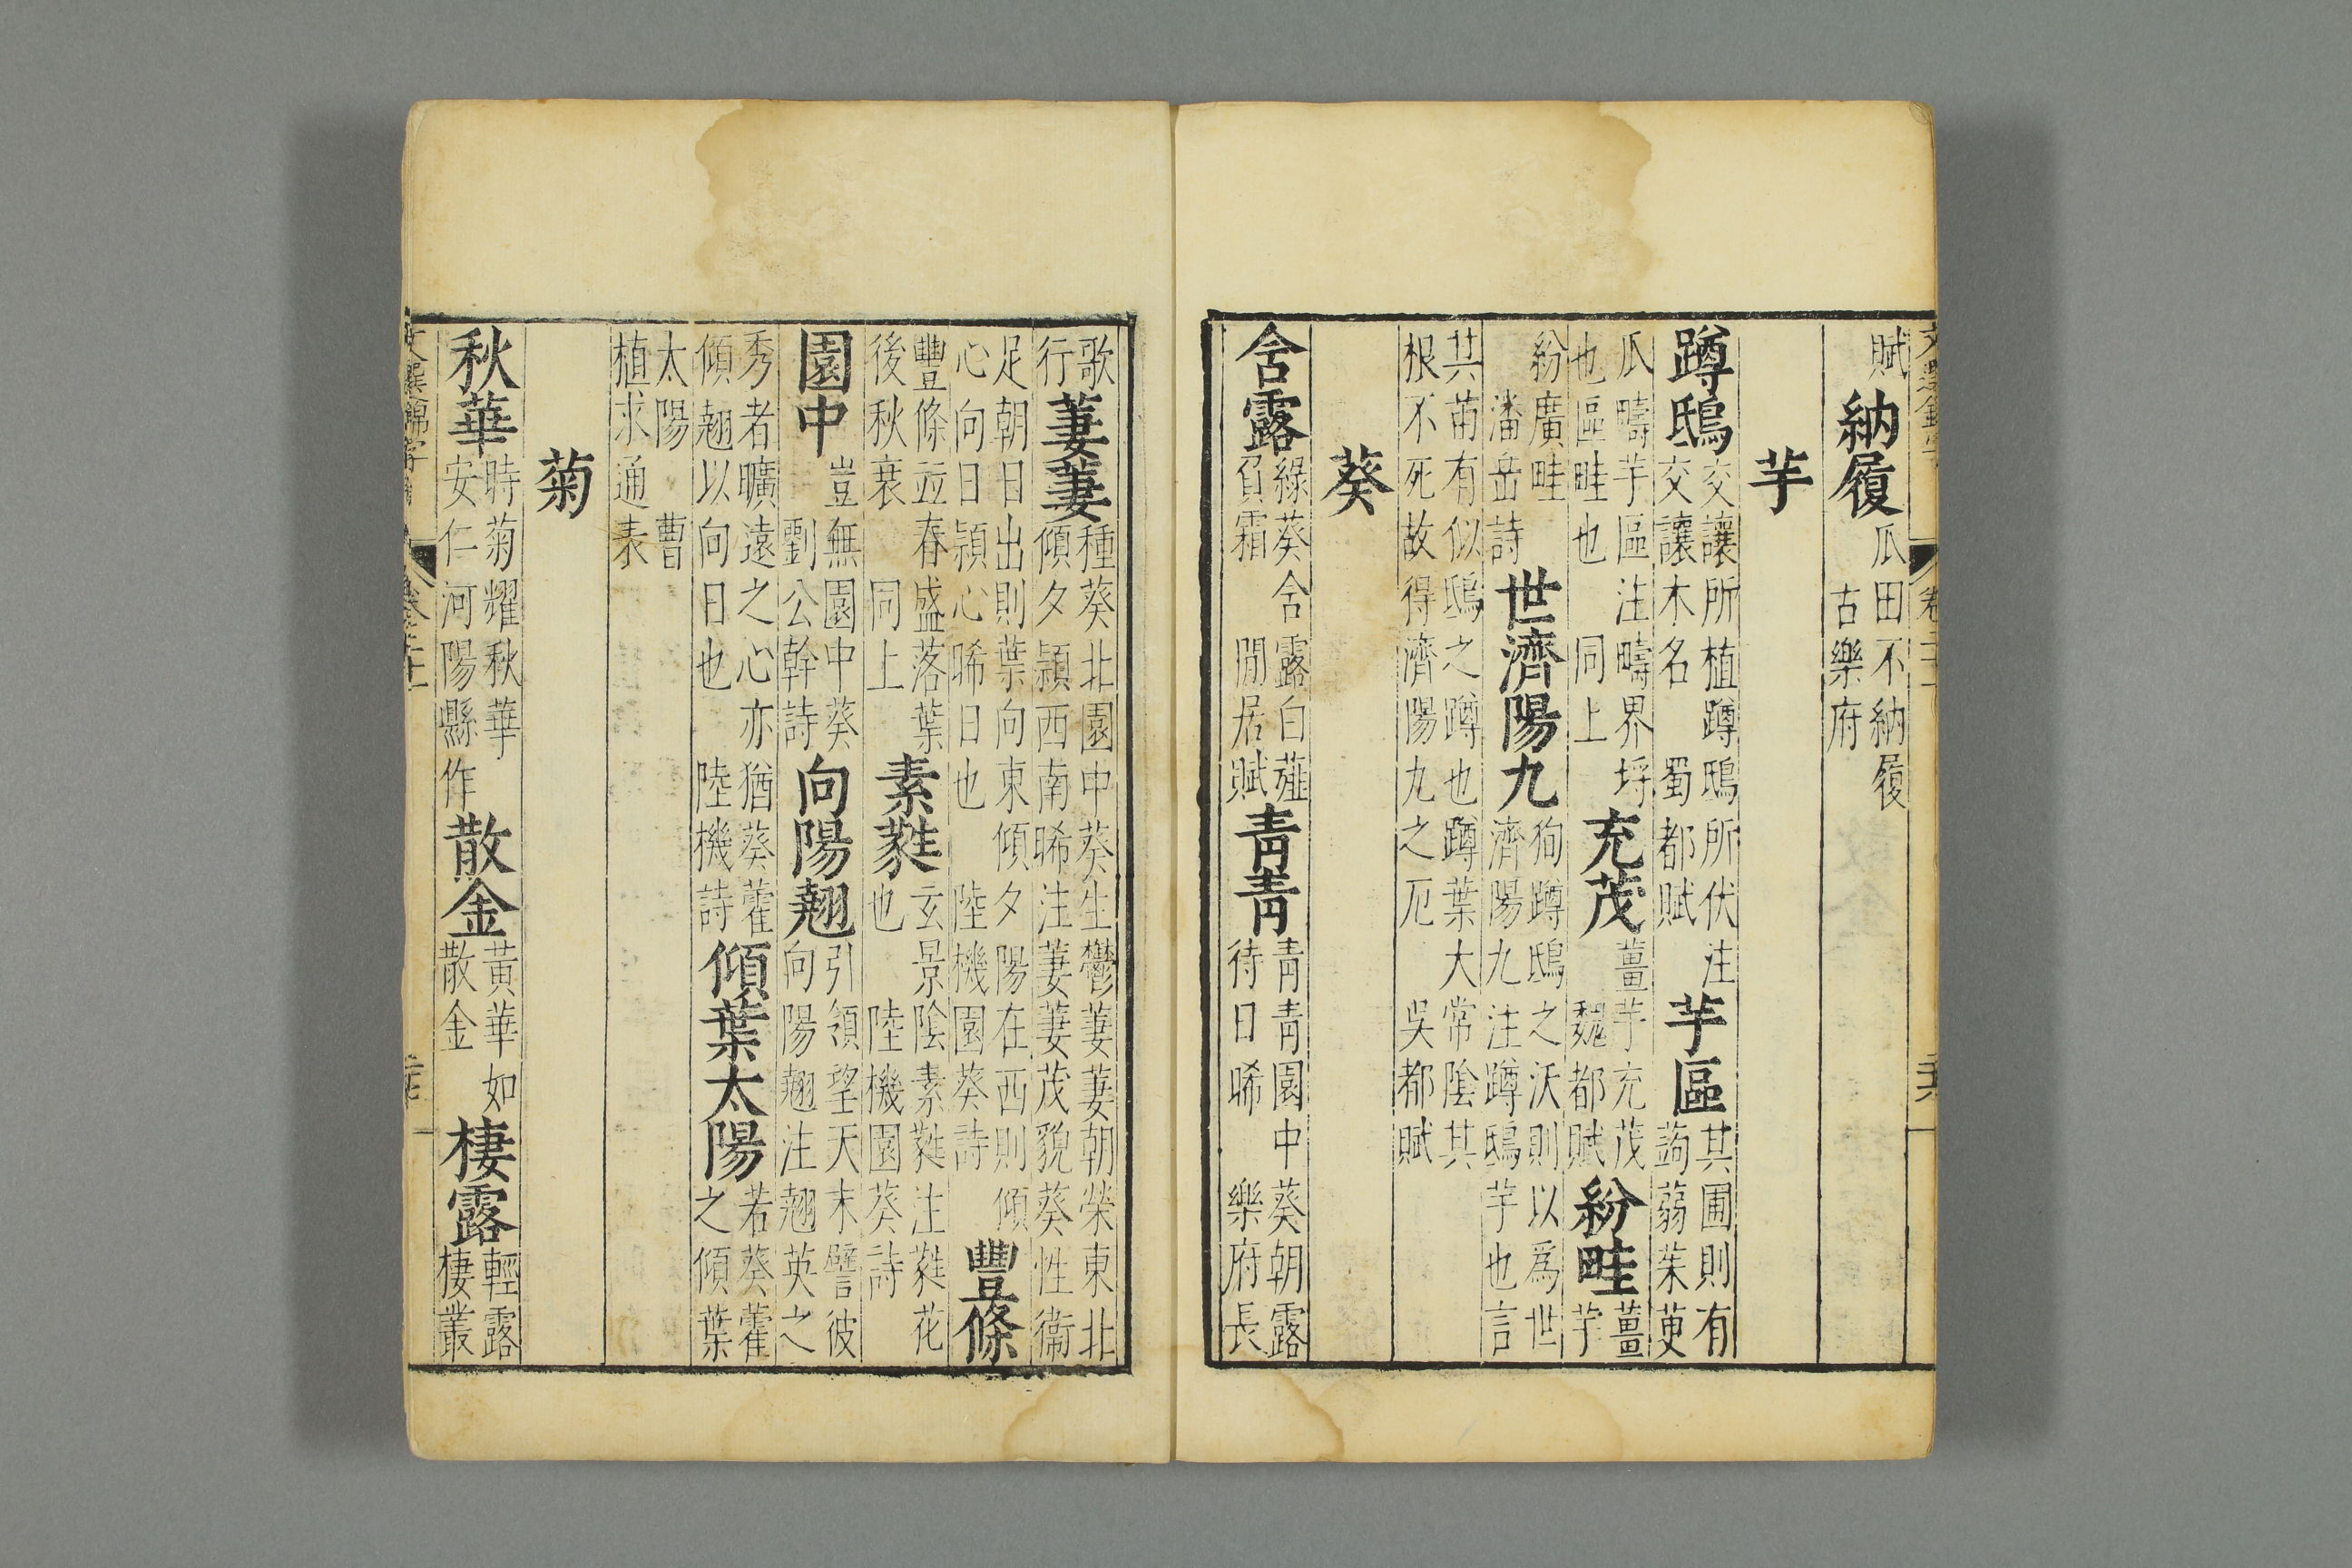 賦納履瓜田不納履古樂府
芋
蹲鴟交讓所植蹲鴟所伏注交讓木名蜀都賦芋區其圃則有蒟蒻茱萸
瓜疇芋區注疇界埒也區畦也同上充茂薑芋充茂魏都賦紛畦薑芋
紛廣畦潘岳詩世濟陽九狥蹲鴟之沃則以爲世濟陽九注蹲鴟芋也言
其葍有似鴟之蹲也蹲葉大常陰其根不死故得濟陽九之厄吳都賦
葵
含露綠葵含露白薤負霜閒居賦青青青青園中葵朝露待日晞樂府長
歌行萋萋種葵北園中葵生鬱萋萋朝榮東北傾夕頴西南晞注萋萋茂貌葵性衞
足朝日出則葉向東傾夕陽在西則傾心向日頴心晞日也陸機園葵詩豐條
豐條竝春盛落葉後秋衰同上素蕤玄景陰素蕤注蕤花也陸機園葵詩
園中豈無園中葵劉公幹詩向陽翹引領望天末譬彼向陽翹注翹英之
秀者曠遠之心亦猶葵藿傾翹以向日也陸機詩傾葉太陽若葵藿之傾葉
太陽曹植求通表
菊
秋華時菊耀秋華安仁河陽縣作散金黃華如散金棲露輕露棲叢